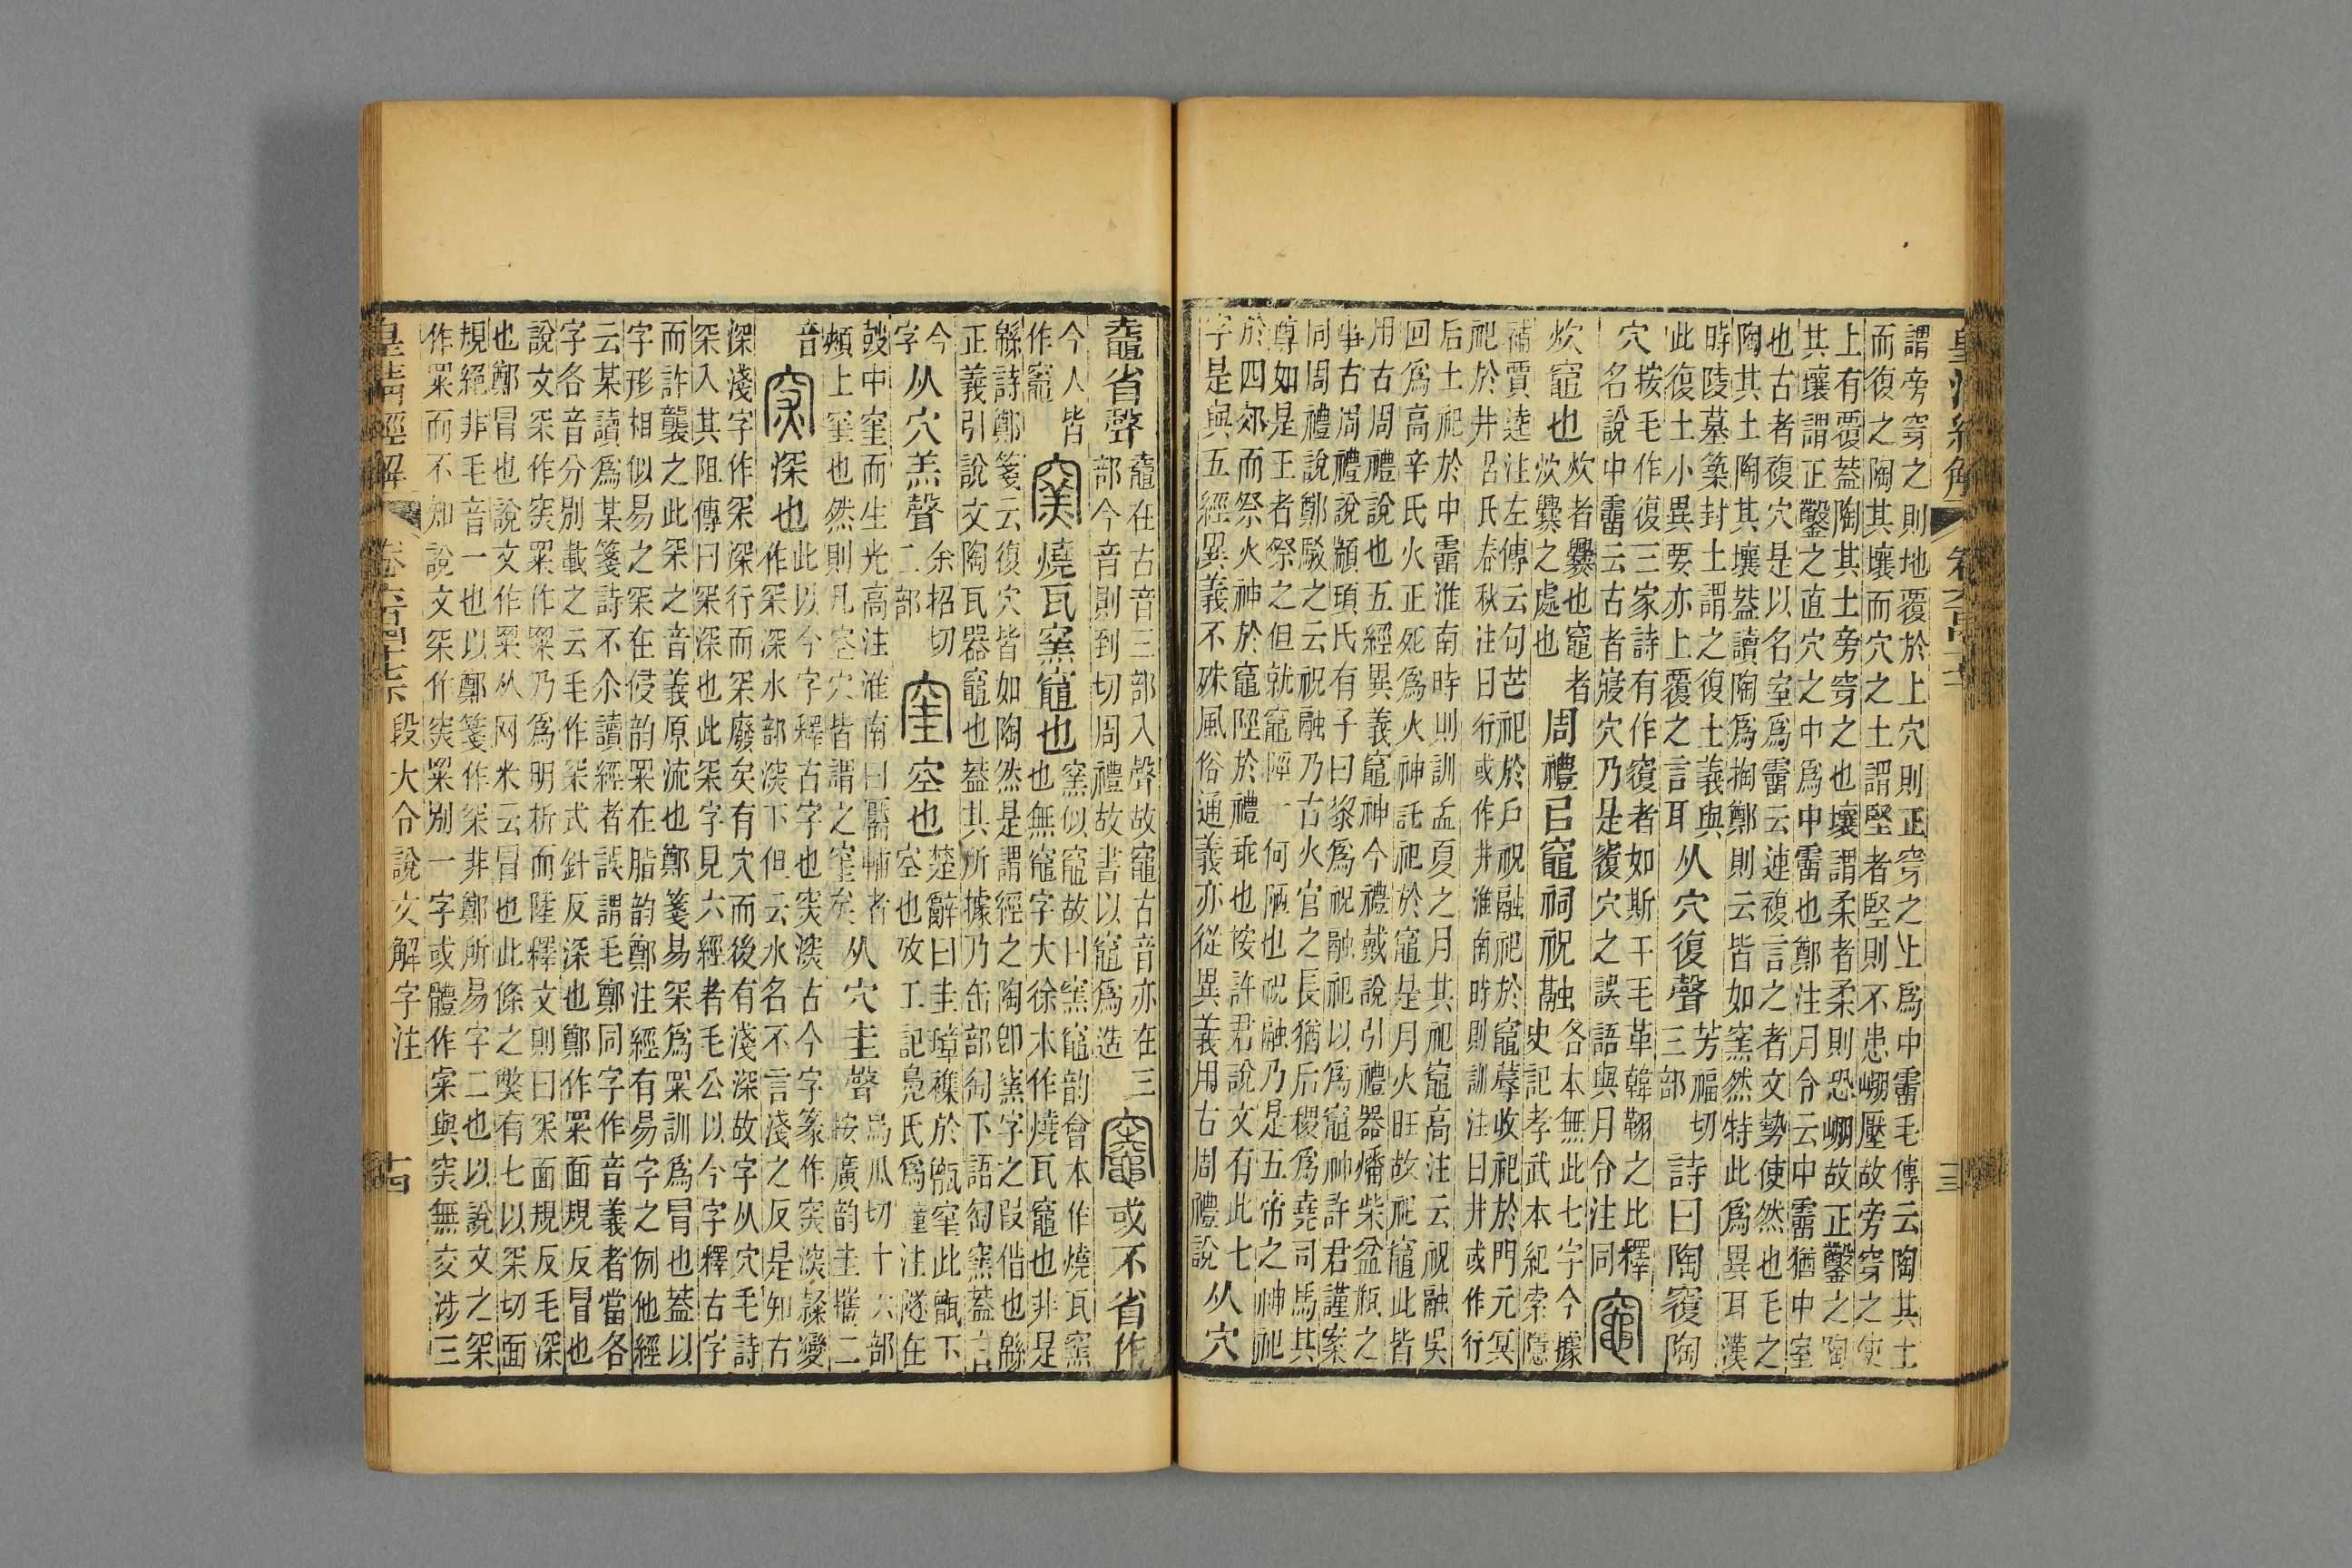 皇清經解
謂旁穿之則地覆於上穴則正穿之上爲中霤毛傳云陶其土
而復之陶其壤而穴之土謂堅者堅則不患崩壓故旁穿之使
上有覆葢陶其土旁穿之也壤謂柔者柔則恐崩故正鑿之陶
其壤謂正鑿之直穴之中爲中霤也鄭注月令云中霤猶中室
也古者複穴是以名室爲霤云連複言之者文勢使然也毛之
陶其土陶其壤葢讀陶爲掏鄭則云皆如窯然特此爲異耳漢
時陵墓築封土謂之復土義與
此復土小異要亦上覆之言耳
从穴復聲
芳福切
三部
詩曰陶覆陶
穴
按毛作復三家詩有作覆者如斯干毛革韓翱之比釋
名說中霤云古者寢穴乃是覆穴之誤語與月令注同
竈
炊竈也
炊者爨也竈者
炊爨之處也
周禮已竈祠祝融
各本無此七字今據
史記孝武本紀索隱
補賈逵注左傳云句芒祀於戶祝融祀於竈蓐收祀於門元冥
祀於井呂氏春秋注曰行或作井淮南時則訓注曰井或作行
后土祀於中霤淮南時則訓孟夏之月其祀竈高注云祝融吳
回爲高辛氏火正死爲火神託祀於竈是月火旺故祀竈此皆
用古周禮說也五經異義竈神今禮戴說引禮器燔柴盆瓶之
事古周禮說顓頊氏有子曰黎爲祝融祀以爲竈神許君謹案
同周禮說鄭駁之云祝融乃古火官之長猶后稷爲堯司馬其
尊如是王者祭之但就竈陘一何陋也祝融乃是五帝之神祀
於四郊而祭火神於竈陘於禮乖也按許君說文有此七
字是與五經異義不殊風俗通義亦從異義用古周禮說
从穴
鼀省聲
鼀在古音三部入聲故竈古音亦在三
部今音則到切周禮故書以竈爲造
竈或不省作
今人皆
作竈
窯燒瓦窯竈也
窯似竈故曰窯竈韵會本作燒瓦窯
也無竈字大徐本作燒瓦竈也非是
緜詩鄭箋云復穴皆如陶然是謂經之陶卽窯字之叚借也緜
正義引說文陶瓦器竈也葢其所據乃缶部匋下語匋窯葢古
今
字
从穴羔聲
余招切
二部
窐空也
楚辭曰圭璋襍於甑窐此甑下
空也攷工記鳧氏爲鐘注隧在
鼓中窐而生光高注淮南曰靨輔者
頰上窐也然則凡空穴皆謂之窐矣
从穴圭聲
烏瓜切十六部
按廣韵圭攜二
音
突深也
此以今字釋古字也突淡古今字篆作突淡隸變
作罙深水部淡下但云水名不言淺之反是知古
深淺字作罙深行而罙廢矣有穴而後有淺深故字从穴毛詩
罙入其阻傳曰罙深也此罙字見六經者毛公以今字釋古字
而許襲之此罙之音義原流也鄭箋易罙爲冞訓爲冒也葢以
字形相似易之罙在侵韵冞在脂韵鄭注經有易字之例他經
云某讀爲某箋詩不介讀經者誤謂毛鄭同字作音義者當各
字各音分別載之云毛作罙式針反深也鄭作冞面規反冒也
說文罙作突冞作冞乃爲明析而陸釋文則曰罙面規反毛深
也鄭冒也說文作冞从网米云冒也此條之獘有七以罙切面
規絕非毛音一也以鄭箋作罙非鄭所易字二也以說文之罙
作冞而不知說文罙作突冞別一字或體作𡩟與突無交涉三
皇清經解
卷六百四十七下
段大令說文解字注
十四